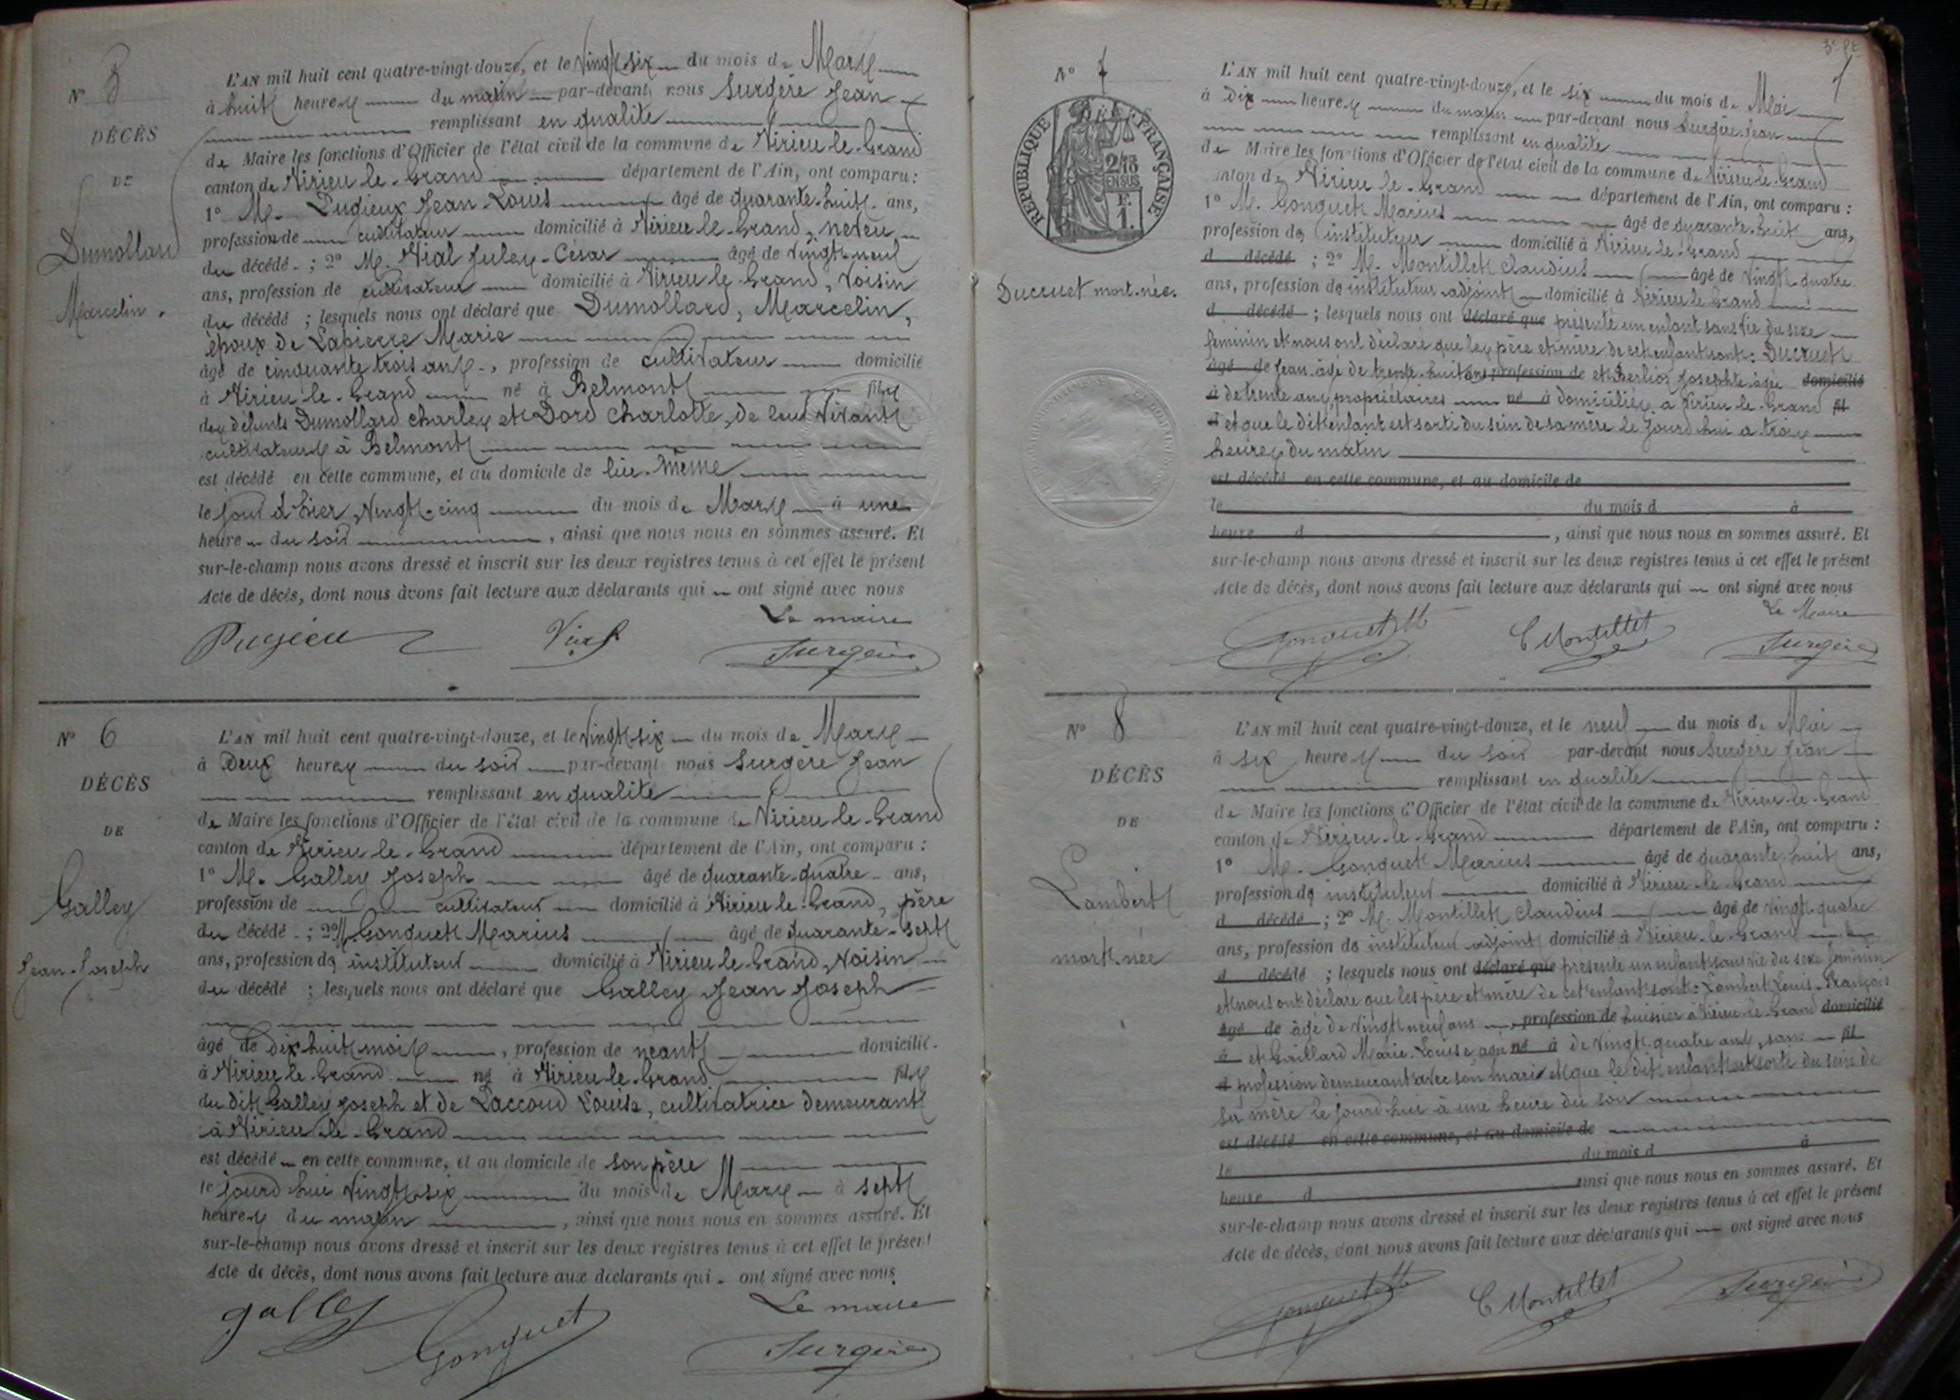 N° 5
DÉCÈS
DE
Dumollard
Marcelin.
L'AN mil huit cent quatre-vingt-douze, et le vingt-six du mois de Mars
à huit heures du matin par-devant nous Surgère Jean
remplissant en qualité
de Maire les fonctions d'Officier de l'état civil de la commune de Virieu-le-Grand
canton de Virieu-le-Grand département de l'Ain, ont comparu :
1° M. Pugieux Jean-Louis âgé de quarante-huit ans,
profession de cultivateur domicilié à Virieu-le-Grand, neveu
du décédé ; 2° M. Vial Jules-César âgé de vingt-neuf
ans, profession de cultivateur domicilié à Virieu-le-Grand, voisin
du décédé ; lesquels nous ont déclaré que Dumollard, Marcelin,
époux de Lapierre Marie
âgé de cinquante trois ans, profession de cultivateur domicilié
à Virieu-le-Grand né à Belmont fils
des défunts Dumollard Charles et Dord Charlotte, de leur vivant
cultivateurs à Belmont
est décédé en cette commune, et au domicile de lui-même
le jour d'hier, vingt-cinq du mois de Mars à une
heure du soir, ainsi que nous nous en sommes assuré. Et
sur-le-champ nous avons dressé et inscrit sur les deux registres tenus à cet effet le présent
Acte de décès, dont nous avons fait lecture aux déclarants qui ont signé avec nous
Le maire
Pugieu Vial Surgère
N° 6
DÉCÈS
DE
Galley
Jean-Joseph
L'AN mil huit cent quatre-vingt-douze, et le vingt-six du mois de Mars
à deux heures du soir par-devant nous Surgère Jean
remplissant en qualité
de Maire les fonctions d'Officier de l'état civil de la commune de Virieu-le-Grand
canton de Virieu-le-Grand département de l'Ain, ont comparu :
1° M. Galley Joseph âgé de quarante-quatre ans,
profession de cultivateur domicilié à Virieu-le-Grand, père
du décédé ; 2° M. Gonguet Marius âgé de quarante-sept
ans, profession d'instituteur domicilié à Virieu-le-Grand, voisin
du décédé ; lesquels nous ont déclaré que Galley Jean Joseph
âgé de dix huit mois, profession de néant domicilié
à Virieu-le-Grand né à Virieu-le-Grand fils
du dit Galley Joseph et de Laccoud Louise, cultivatrice demeurant
à Virieu-le-Grand
est décédé en cette commune, et au domicile de son père
le jourd'hui vingt-six du mois de Mars à sept
heures du matin, ainsi que nous nous en sommes assuré. Et
sur-le-champ nous avons dressé et inscrit sur les deux registres tenus à cet effet le présent
Acte de décès, dont nous avons fait lecture aux déclarants qui ont signé avec nous
Le maire
Galley Gonguet Surgère
N° 7
RÉPUBLIQUE FRANÇAISE
Ducruet mort-née.
L'AN mil huit cent quatre-vingt-douze, et le six du mois de Mai
à dix heures du matin par-devant nous Surgère Jean
remplissant en qualité
de Maire les fonctions d'Officier de l'état civil de la commune de Virieu-le-Grand
canton de Virieu-le-Grand département de l'Ain, ont comparu :
1° M. Gonguet Marius âgé de quarante-huit ans,
profession d'instituteur domicilié à Virieu-le-Grand
d décédé ; 2° M. Montillet Claudius âgé de vingt-quatre
ans, profession d'instituteur adjoint domicilié à Virieu-le-Grand
d décédé ; lesquels nous ont déclaré que présenté un enfant sans vie du sexe
féminin et nous ont déclaré que les père et mère de cet enfant sont : Ducruet
âgé de Jean âgé de trente-huit ans profession de et Berlioz Josephte âgée domicilié
à de trente ans, propriétaires né à domiciliés à Virieu-le-Grand fil
d et que le dit enfant est sorti du sein de sa mère le jourd'hui à trois
heures du matin
est décédé en cette commune, et au domicile de
le du mois d à
heure d, ainsi que nous nous en sommes assuré. Et
sur-le-champ nous avons dressé et inscrit sur les deux registres tenus à cet effet le présent
Acte de décès, dont nous avons fait lecture aux déclarants qui ont signé avec nous
Le Maire
Gonguet C Montillet Surgère
N° 8
DÉCÈS
DE
Lambert
mort-née
L'AN mil huit cent quatre-vingt-douze, et le neuf du mois de Mai
à six heures du soir par-devant nous Surgère Jean
remplissant en qualité
de Maire les fonctions d'Officier de l'état civil de la commune de Virieu-le-Grand
canton de Virieu-le-Grand département de l'Ain, ont comparu :
1° M. Gonguet Marius âgé de quarante-huit ans,
profession d'instituteur domicilié à Virieu-le-Grand
d décédé ; 2° M. Montillet Claudius âgé de vingt-quatre
ans, profession d'instituteur adjoint domicilié à Virieu-le-Grand
d décédé ; lesquels nous ont déclaré que présenté un enfant sans vie du sexe féminin
et nous ont déclaré que les père et mère de cet enfant sont : Lambert Louis-François
âgé de âgé de vingt-neuf ans, profession de huissier à Virieu-le-Grand domicilié
à et Gaillard Marie-Louise, âgée né à de vingt quatre ans, sans fil
d profession demeurant avec son mari et que le dit enfant est sorti du sein de
sa mère le jourd'hui à une heure du soir
est décédé en cette commune, et au domicile de
le du mois d à
heure d ainsi que nous nous en sommes assuré. Et
sur-le-champ nous avons dressé et inscrit sur les deux registres tenus à cet effet le présent
Acte de décès, dont nous avons fait lecture aux déclarants qui ont signé avec nous
Gonguet C Montillet Surgère